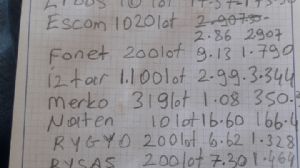 Escom 1020lot 2.907.5
2.86 2907
Fonet 200lot 9.13 1.790
iztar 1.100lot 2.99.3.344
merko 319lot 1.08 350.
Naten 10lot 16.60 166.4
RYGYO 200lot 6.62 1.328
RYSAS 200lot 7.20 1.460